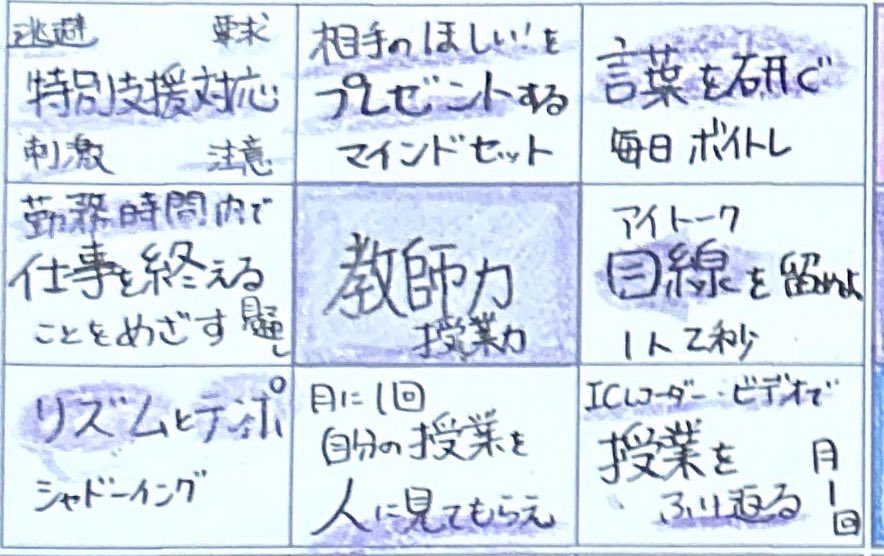 逃避 要求
特別支援対応
刺激 注意
相手のほしい！を
プレゼントする
マインドセット
言葉を研ぐ
毎日ボイトレ
勤務時間内で
仕事を終える
ことをめざす 見通し
教師力
授業力
アイトーク
目線を留めよ
1人2秒
リズムとテンポ
シャドーイング
月に1回
自分の授業を
人に見てもらえ
ICレコーダー・ビデオで
授業を
ふり返る 月1回